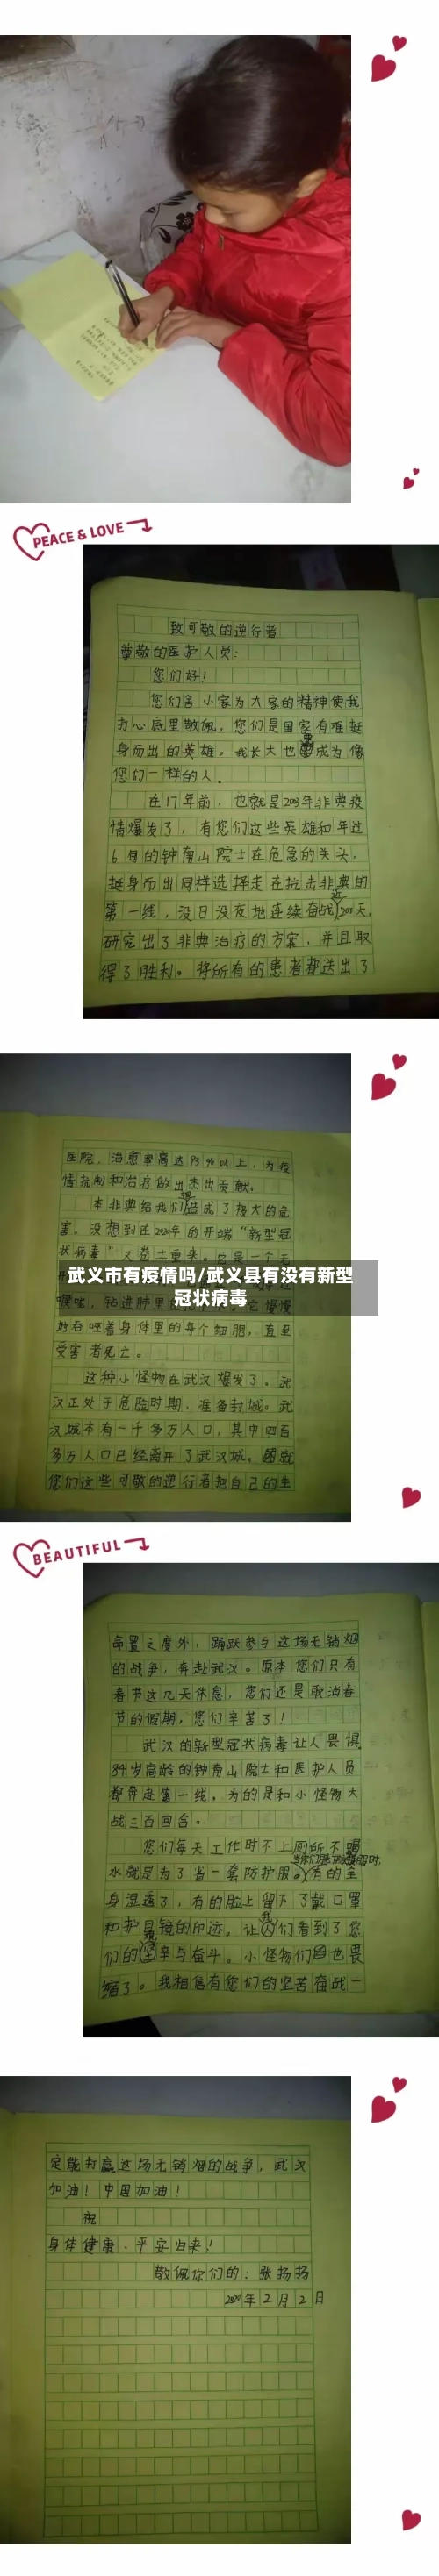 PEACE & LOVE
致可敬的逆行者
尊敬的医护人员:
您们好!
您们舍小家为大家的精神使我
打心底里敬佩。您们是国家有难挺
身而出的英雄。我长大也要成为像
您们一样的人。
在17年前,也就是2003年非典疫
情爆发了,有您们这些英雄和年过
6旬的钟南山院士在危急的关头,
挺身而出同样选择走在抗击非典的
第一线,没日没夜地连续奋战近
天,
研究出了非典治疗的方案,并且取
得了胜利。将所有的患者都送出了
医院,治愈率高达93%以上,为疫
情抗制和治疗做出杰出贡献。
本非典给我们造成了极大的危
害。没想到在2020年的开端“新型冠
状病毒”又卷土重来。它是一个无
武义市有疫情吗/武义县有没有新型
冠状病毒
喉咙,钻进肺里
它慢慢
地吞噬着身体里的每个细胞,直至
受害者死亡。
这种小怪物在武汉爆发了。武
汉正处于危险时期,准备封城。武
汉城本有一千多万人口,其中四百
多万人口已经离开了武汉城。就
您们这些可敬的逆行者把自己的生
BEAUTIFUL
命置之度外,踊跃参与这场无销烟
的战争,奔赴武汉。原本您们只有
春节这几天休息,您们还是取消春
节的假期,您们辛苦了!
武汉的新型冠状病毒让人畏惧
84岁高龄的钟南山院士和医护人员
都奔赴第一线,为的是和小怪物大
战三百回合。
您们每天工作时不上厕所不喝
水就是为了省一套防护服。有的全
身湿透了,有的脸上留下了戴口罩
和护目镜的印迹。让我们看到了您
们的艰辛与奋斗。小怪物们也畏
缩了。我相信有您们的坚苦奋战一
定能打赢这场无销烟的战争,武汉
加油!中国加油!
祝
身体健康、平安归来!
敬佩您们的:张扬扬
2020年2月2日